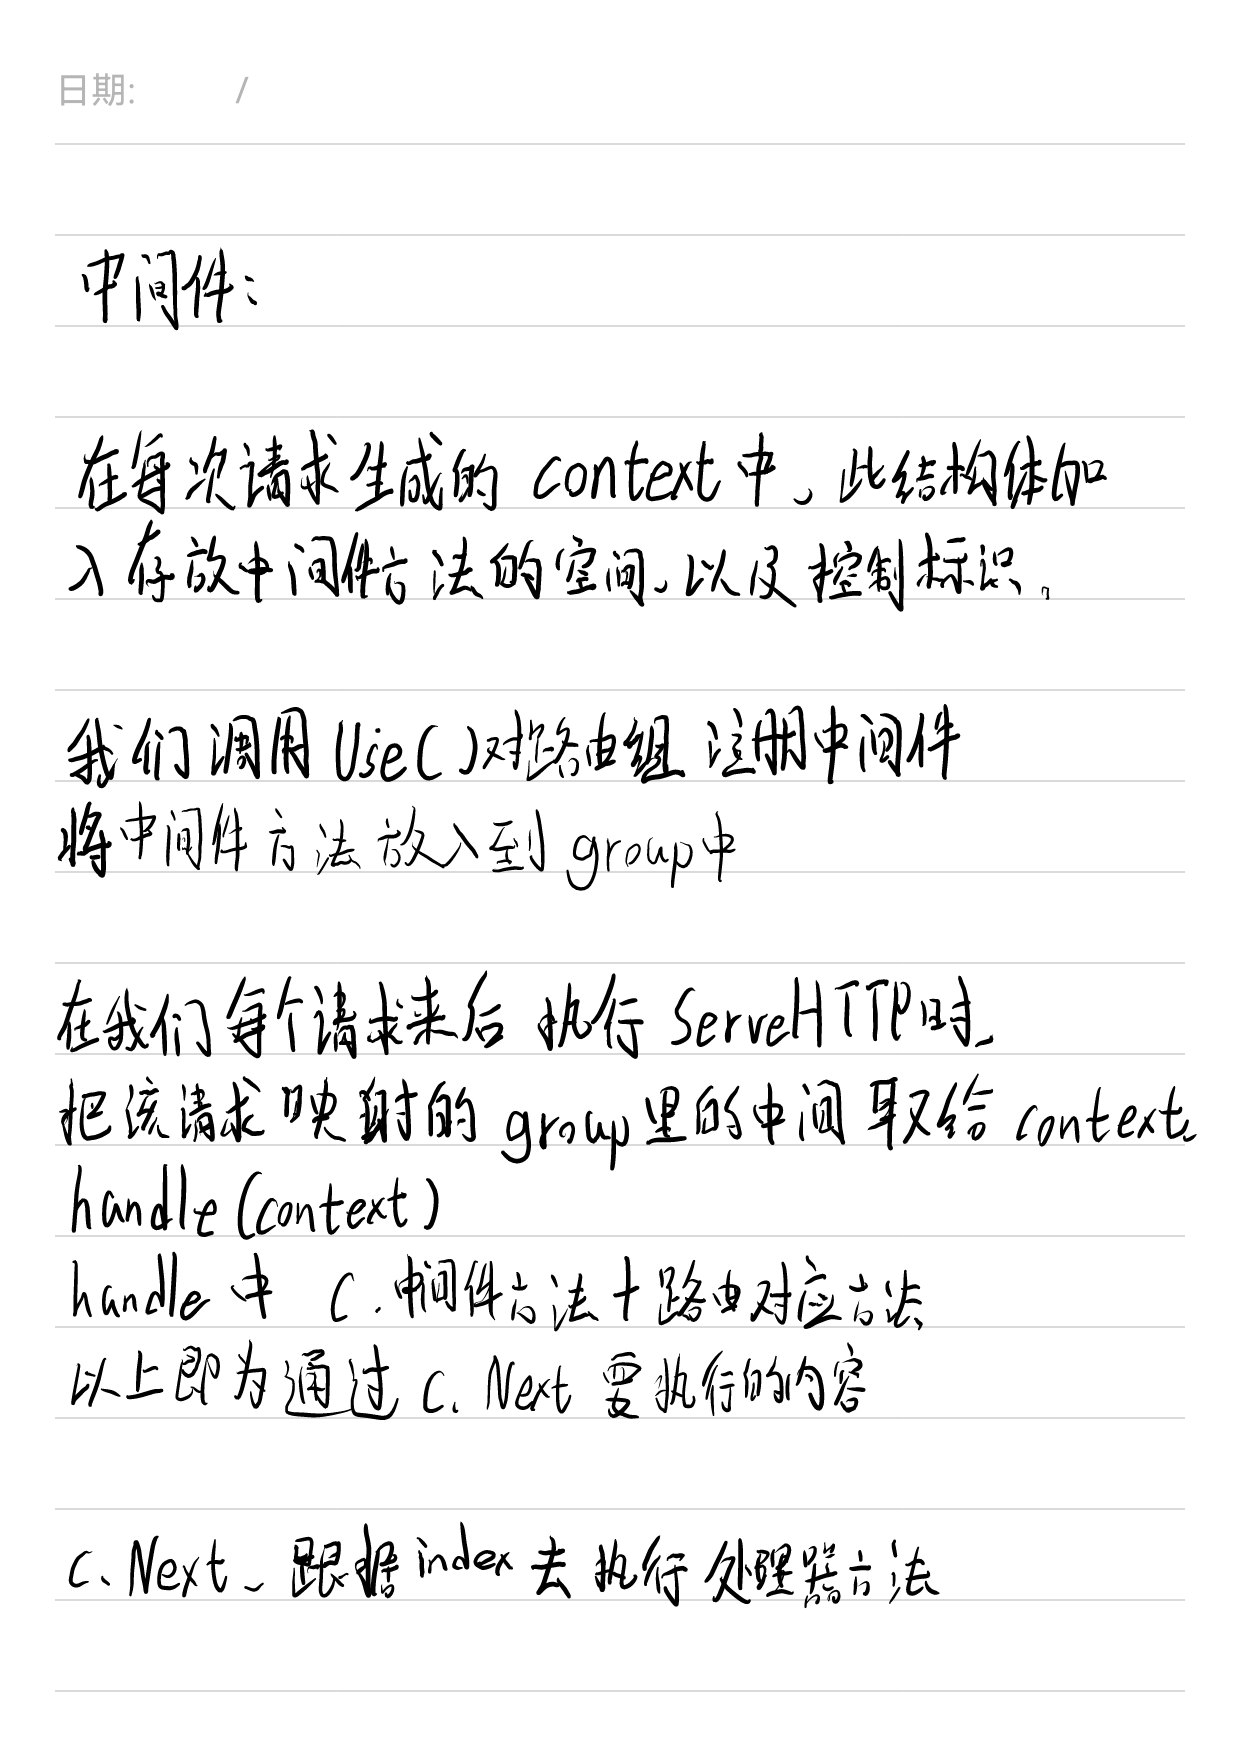 日期: /
中间件：
在每次请求生成的 context 中，此结构体加
入存放中间件方法的空间，以及控制标识。
我们调用 Use() 对路由组 注册中间件
将中间件方法放入到 group中
在我们每个请求来后 执行 ServeHTTP时，
把该请求映射的 group里的中间取给 context，
handle (context)
handle 中 C . 中间件方法 + 路由对应方法
以上即为通过 C. Next 要执行的内容
C. Next，跟据 index 去执行处理器方法